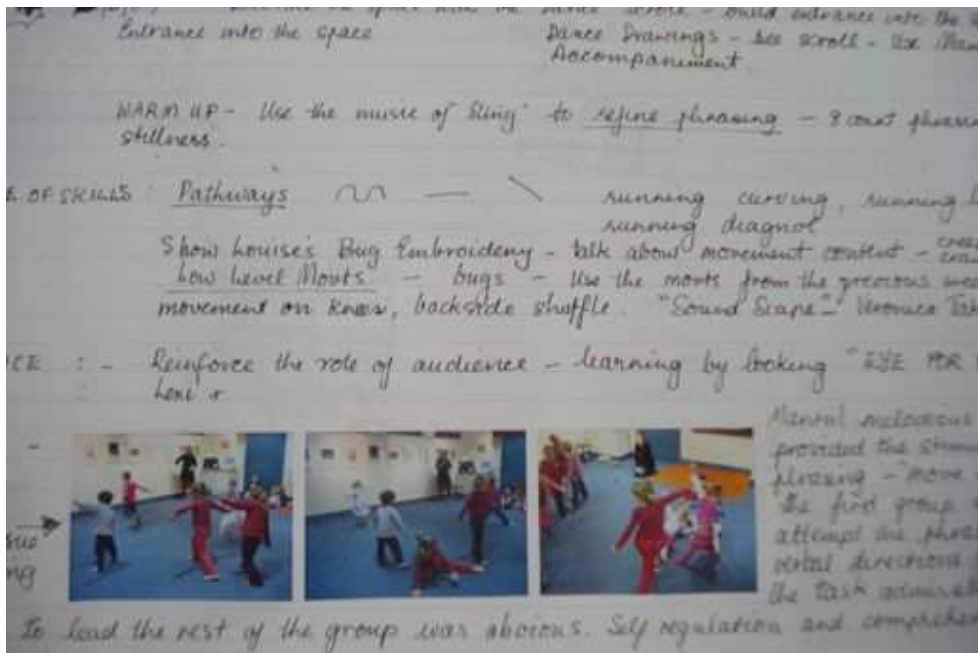 the space with the dance scrolls - build entrance into the
Entrance into the space Dance Drawings - see scroll - Use
Accompaniment
WARM UP - Use the music of "Sling" to refine phrasing - 8 count
stillness.
OF SKILLS : Pathways running curving, running
running diagnol
Show Louise's Bug Embroidery - talk about movement content -
Low Level Movts - bugs - Use the movts from the previous
movement on knees, backside shuffle. "Sound Scape" - Veronica
CE : - Reinforce the role of audience - learning by looking "EYE FOR
here
-
melodious
provided the
phrasing - "move
the first group
attempt the
verbal directions
ng the task
To lead the rest of the group was obvious. Self regulation and